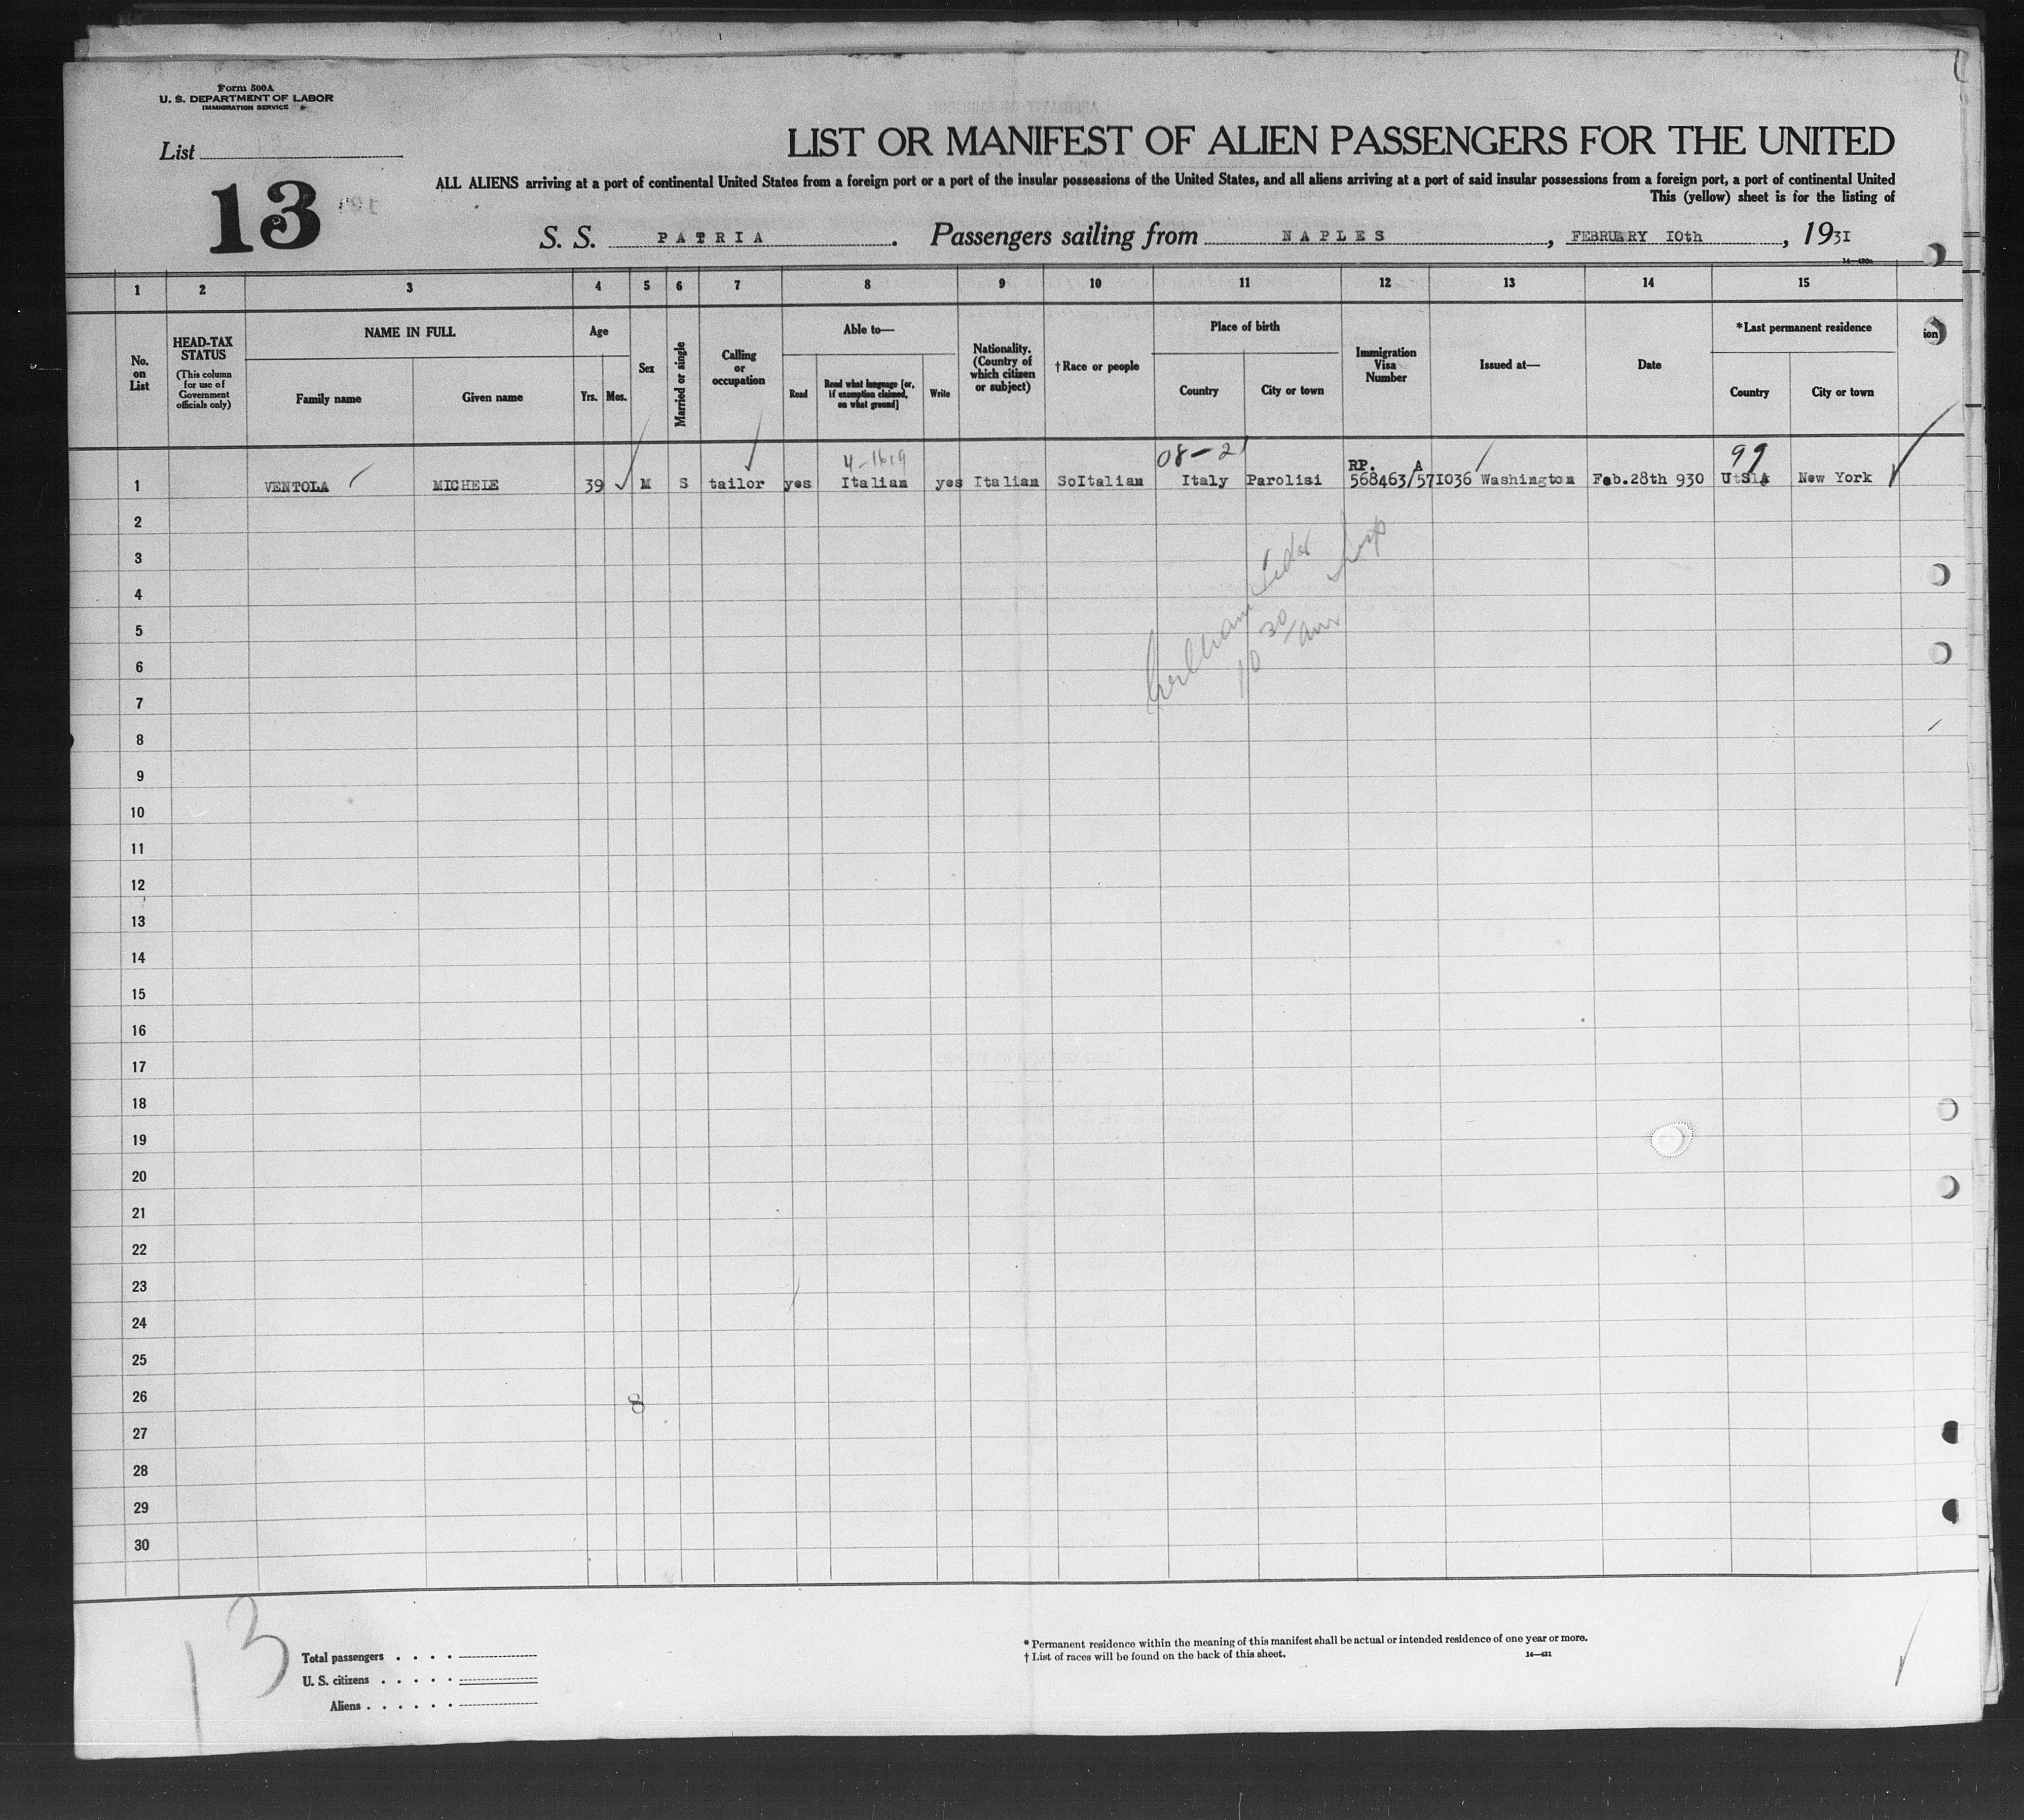 Form 500A
U. S. DEPARTMENT OF LABOR
IMMIGRATION SERVICE
List
13
LIST OR MANIFEST OF ALIEN PASSENGERS FOR THE UNITED
ALL ALIENS arriving at a port of continental United States from a foreign port or a port of the insular possessions of the United States, and all aliens arriving at a port of said insular possessions from a foreign port, a port of continental United
This (yellow) sheet is for the listing of
S. S. PATRIA. Passengers sailing from NAPLES, FEBRUARY 10th, 1931
1 2 3 4 5 6 7 8 9 10 11 12 13 14 15
No. on List
HEAD-TAX STATUS
(This column for use of Government officials only)
NAME IN FULL
Family name Given name
Age
Yrs. Mos.
Sex
Married or single
Calling or occupation
Able to—
Read
Read what language [or, if exemption claimed, on what ground]
Write
Nationality. (Country of which citizen or subject)
† Race or people
Place of birth
Country City or town
Immigration Visa Number
Issued at—
Date
* Last permanent residence
Country City or town
ion)
4-1619 08-21 RP. A 99
1 VENTOLA MICHELE 39 M S tailor yes Italian yes Italian SoItalian Italy Parolisi 568463/571036 Washington Feb.28th 930 USA New York
2
3
4
5
10 30
6
7
8
9
10
11
12
13
14
15
16
17
18
19
20
21
22
23
24
25
26
8
27
28
29
30
13
Total passengers
U. S. citizens
Aliens
* Permanent residence within the meaning of this manifest shall be actual or intended residence of one year or more.
† List of races will be found on the back of this sheet.
14—431